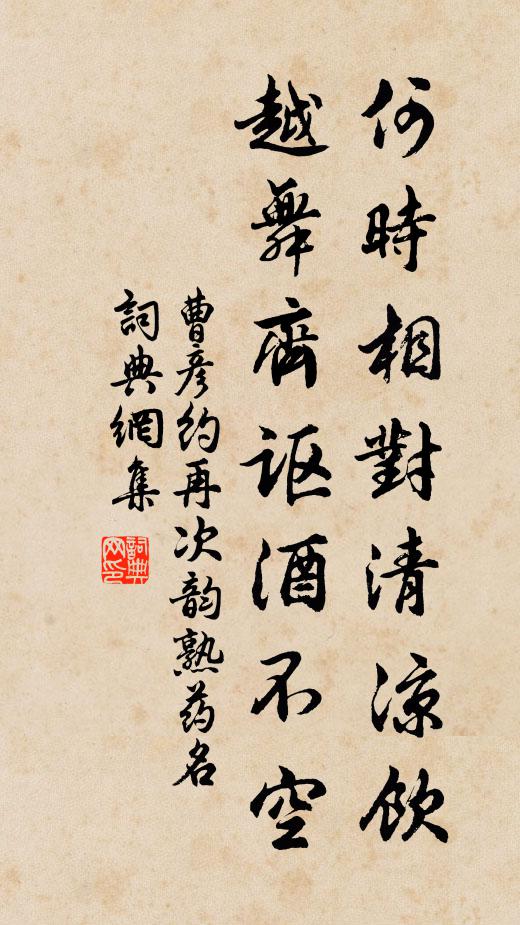 何時相對清涼飲
越舞齊謳酒不空
曹彦約再次韵熟药名
詞典網集
詞典网印